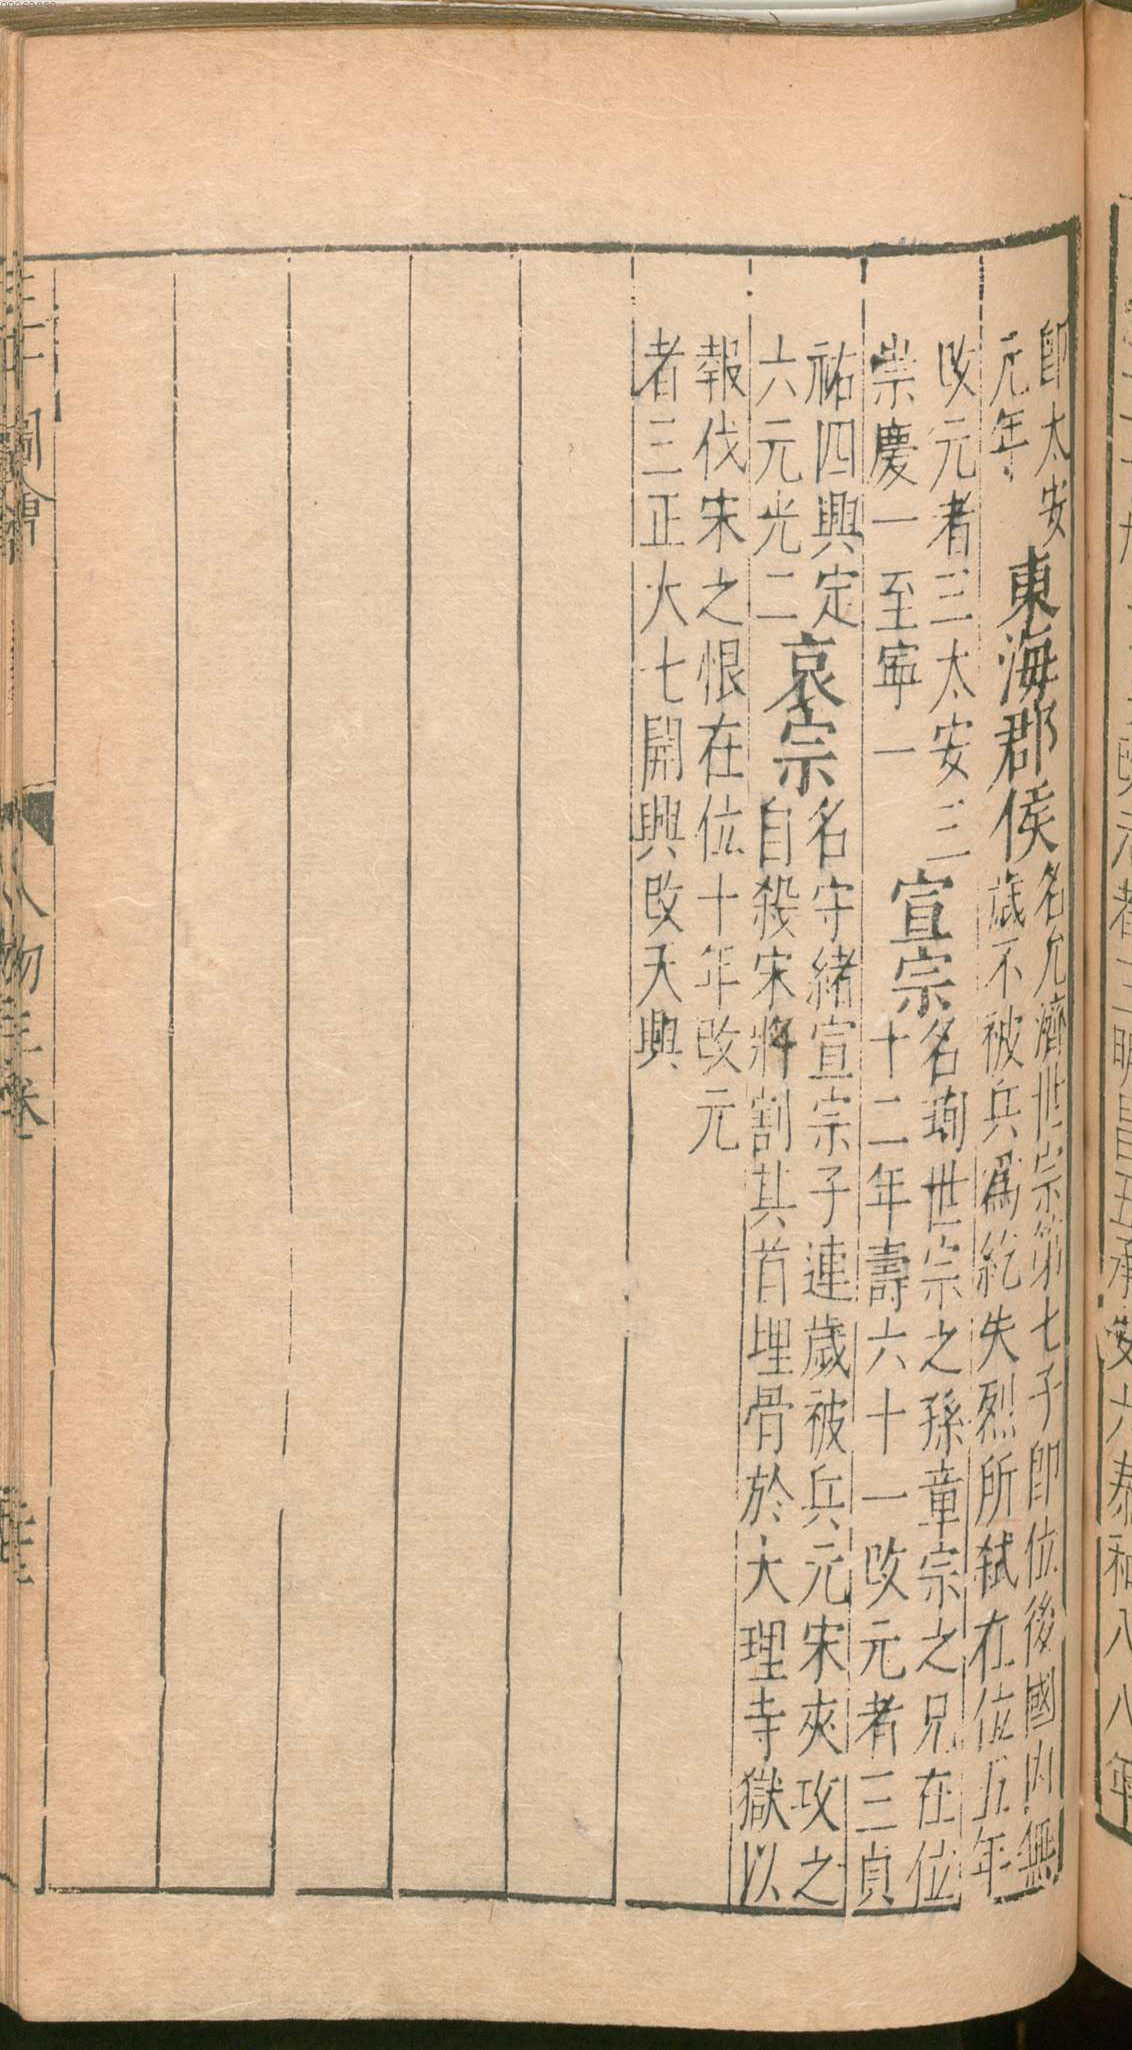 即太安
元年
東海郡侯
名允濟世宗第七子即位後國內無
歲不被兵爲紇失烈所弑在位五年
改元者三太安三
崇慶一至寧一
宣宗
名珣世宗之孫章宗之兄在位
十二年壽六十一改元者三貞
祐四興定
六元光二
哀宗
名守緒宣宗子連歲被兵元宋夾攻之
自殺宋將割其首埋骨於大理寺獄以
報伐宋之恨在位十年改元
者三正大七開興改天興
三才圖會
人物三卷